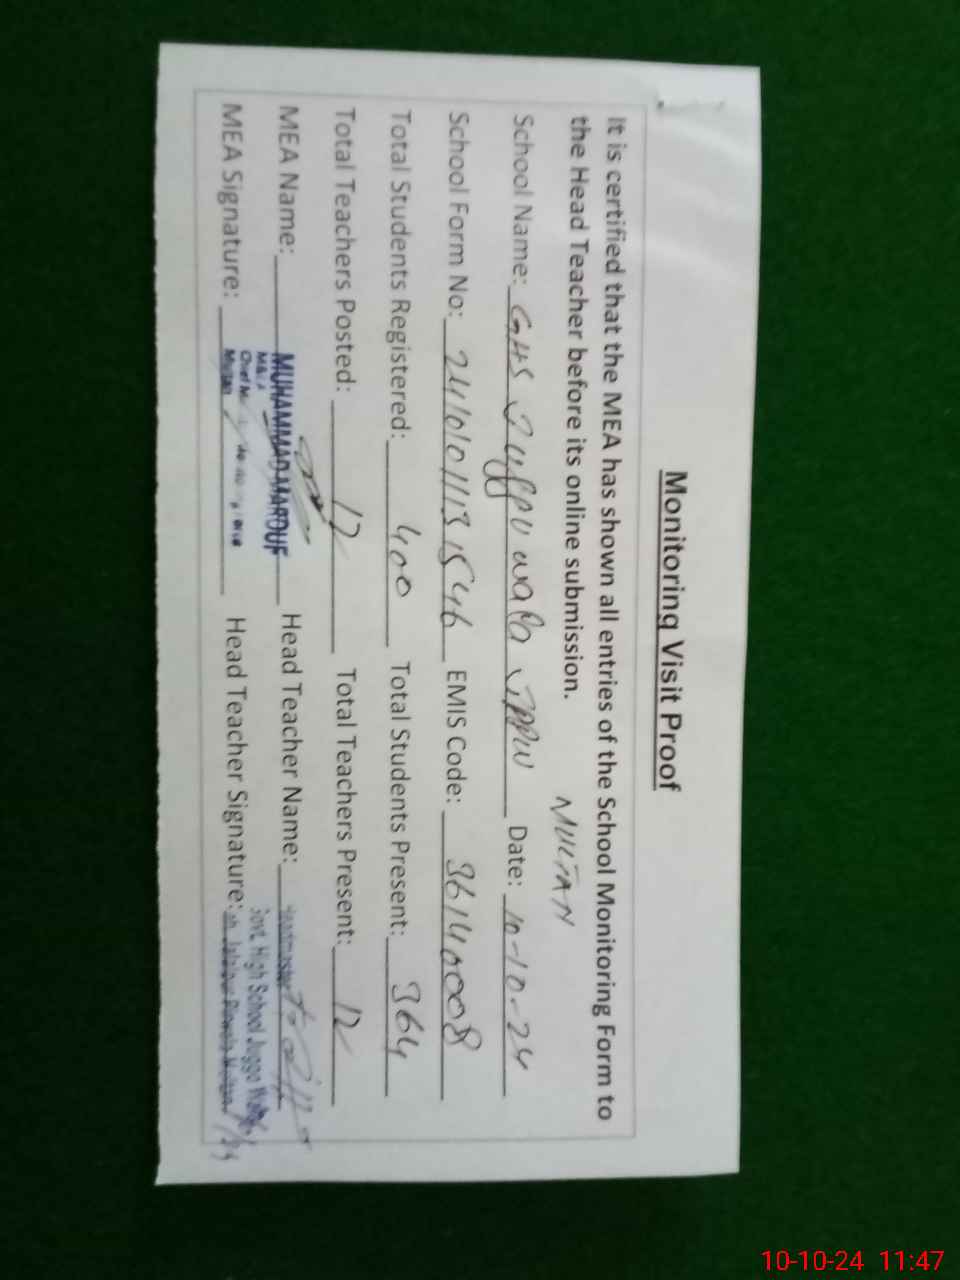 Monitoring Visit Proof
It is certified that the MEA has shown all entries of the School Monitoring Form to
the Head Teacher before its online submission.
MULTAN
School Name: GHS Juggu wala JPPW Date: 10-10-24
School Form No: EMIS Code: 36140008
Total Students Registered: 400 Total Students Present: 364
Total Teachers Posted: 12 Total Teachers Present: 12
MEA Name: MUHAMMAD MAROUF Head Teacher Name: Headmaster
MEA Signature: Multan Head Teacher Signature:
Govt. High School Juggo Wala
Jalalpur Pirwala Multan
10-10-24 11:47